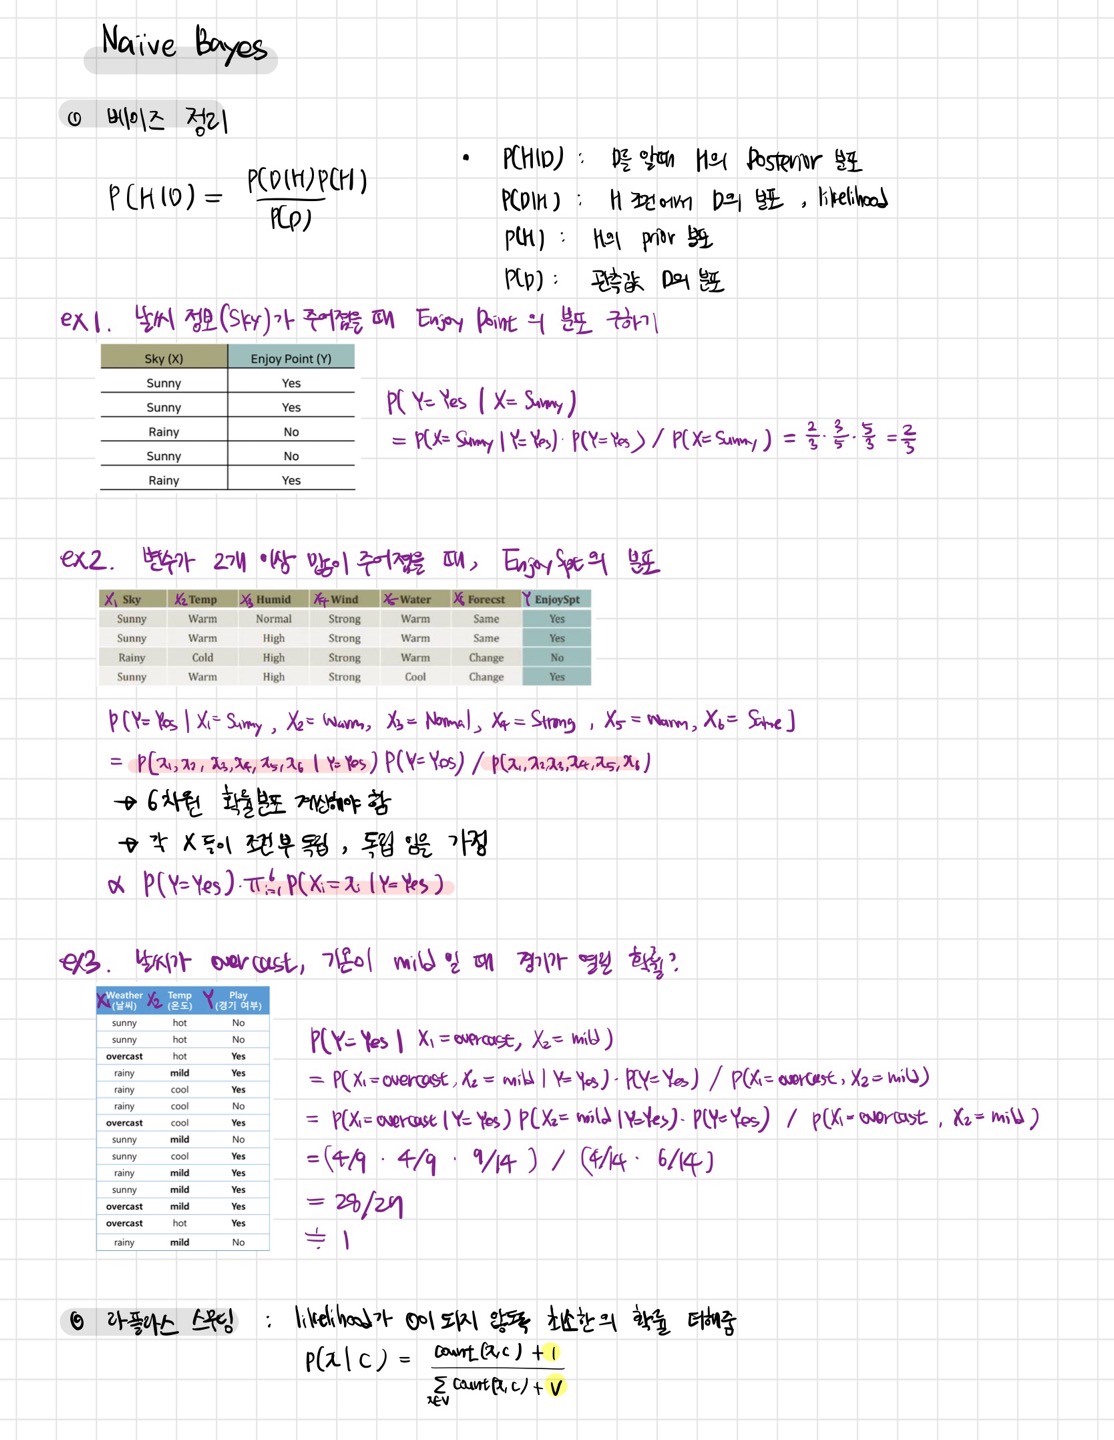 Naïve Bayes
① 베이즈 정리
P(H|D) = P(D|H)P(H) / P(D)
• P(H|D) : D를 알때 H의 Posterior 분포
P(D|H) : H 조건에서 D의 분포 , likelihood
P(H) : H의 prior 분포
P(D) : 관측값 D의 분포
ex1. 날씨 정보(Sky)가 주어졌을 때 Enjoy Point 의 분포 구하기
Sky (X) Enjoy Point (Y)
Sunny Yes
Sunny Yes
Rainy No
Sunny No
Rainy Yes
P( Y= Yes | X= Sunny )
= P(X= Sunny | Y= Yes) · P(Y= Yes ) / P( X= Sunny ) = 2/3 · 3/5 · 5/3 = 2/3
ex2. 변수가 2개 이상 많이 주어졌을 때, Enjoy Spt 의 분포
X₁ Sky X₂ Temp X₃ Humid X₄ Wind X₅ Water X₆ Forecst Y EnjoySpt
Sunny Warm Normal Strong Warm Same Yes
Sunny Warm High Strong Warm Same Yes
Rainy Cold High Strong Warm Change No
Sunny Warm High Strong Cool Change Yes
P(Y= Yes | X₁= Sunny , X₂= Warm, X₃= Normal, X₄= Strong , X₅= Warm, X₆= Same)
= P(x₁, x₂, x₃, x₄, x₅, x₆ | Y= Yes) P(Y= Yes) / P(x₁, x₂, x₃, x₄, x₅, x₆)
→ 6차원 확률분포 계산해야 함
→ 각 X들이 조건부 독립 , 독립 임을 가정
∝ P(Y=Yes) · π⁶ᵢ₌₁ P(Xᵢ = xᵢ | Y= Yes )
ex3. 날씨가 overcast, 기온이 mild 일 때 경기가 열릴 확률?
X₁ Weather (날씨) X₂ Temp (온도) Y Play (경기 여부)
sunny hot No
sunny hot No
overcast hot Yes
rainy mild Yes
rainy cool Yes
rainy cool No
overcast cool Yes
sunny mild No
sunny cool Yes
rainy mild Yes
sunny mild Yes
overcast mild Yes
overcast hot Yes
rainy mild No
P(Y= Yes | X₁ = overcast, X₂= mild)
= P( X₁= overcast, X₂ = mild | Y= Yes) · P(Y= Yes) / P(X₁= overcast, X₂= mild)
= P(X₁= overcast | Y= Yes) P(X₂= mild | Y=Yes) · P(Y=Yes) / P(X₁= overcast , X₂= mild )
= (4/9 · 4/9 · 9/14 ) / (4/14 · 6/14)
= 28/29
≒ 1
② 라플라스 스무딩 : likelihood가 0이 되지 않도록 최소한의 확률 더해줌
P(x|c) = count (x,c) + 1 / ∑x∈V count(x,c) + V